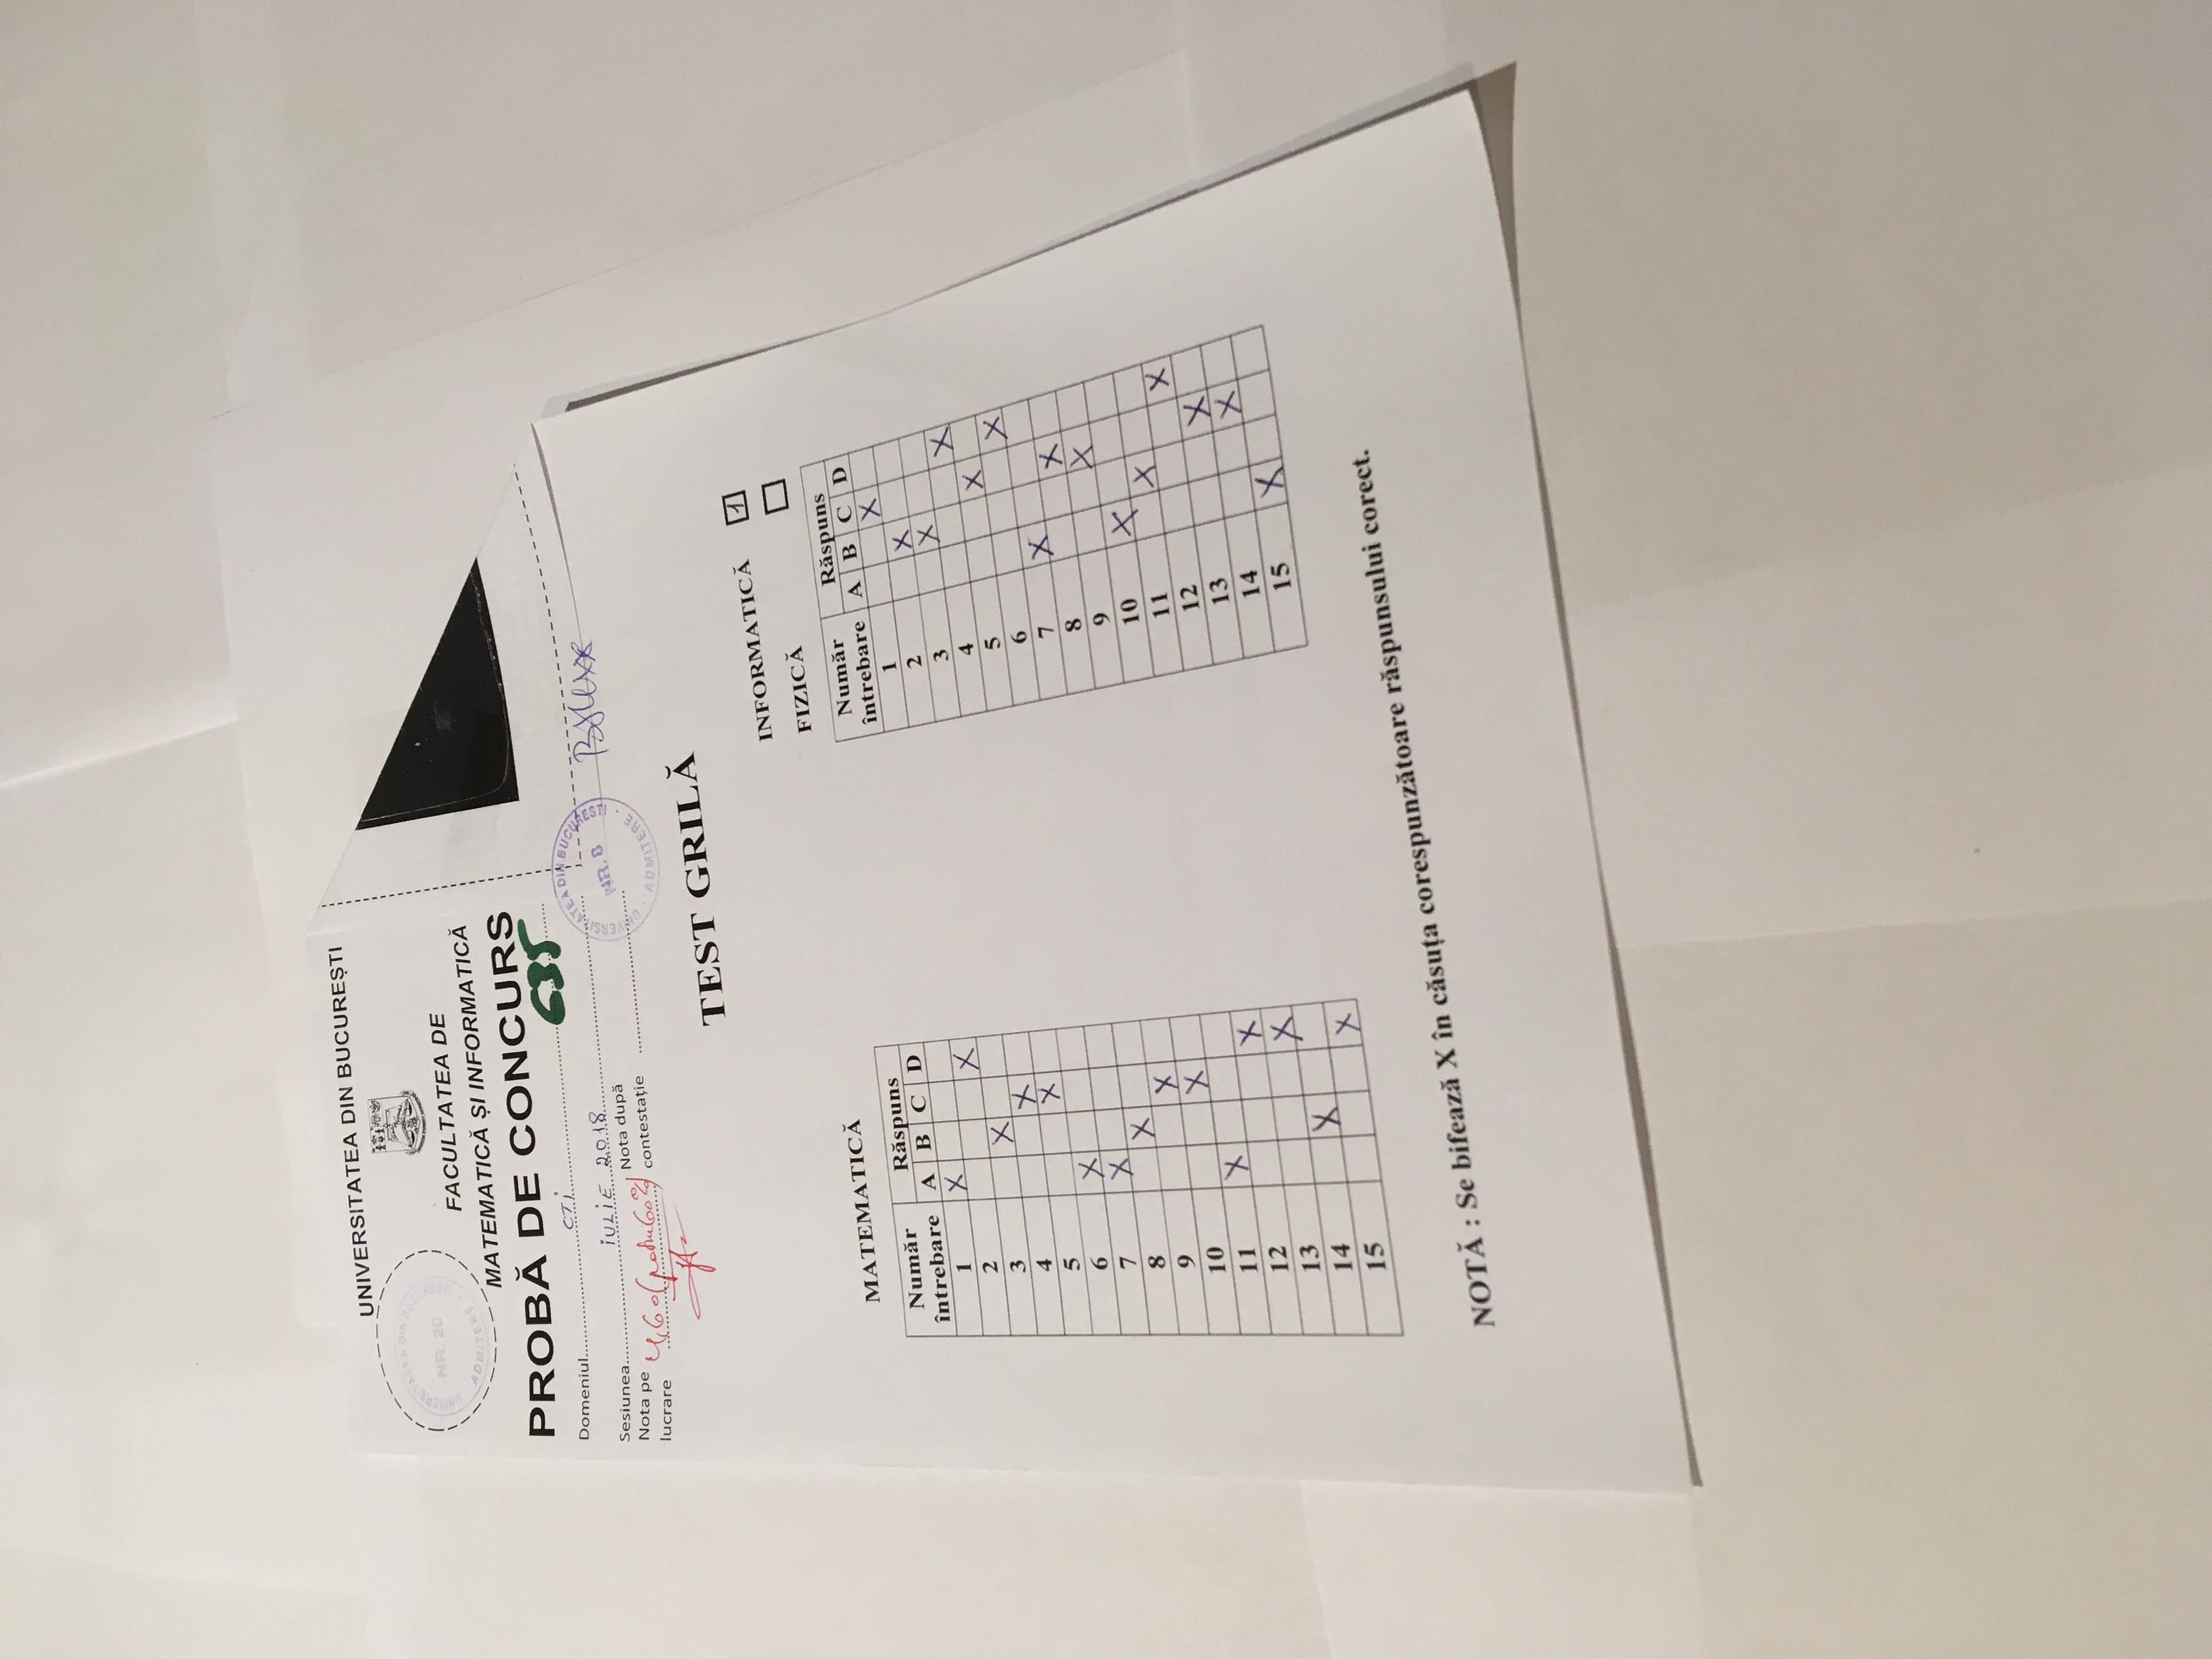 UNIVERSITATEA DIN BUCUREȘTI
UNIVERSITATEA DIN BUCUREȘTI
NR. 20
ADMITERE
FACULTATEA DE
MATEMATICĂ ȘI INFORMATICĂ
PROBĂ DE CONCURS
635
Domeniul CTI
Sesiunea IULIE 2018
Nota pe lucrare 4,60 (patru 60%)
Nota după contestație
UNIVERSITATEA DIN BUCUREȘTI
NR. 8
ADMITERE
TEST GRILĂ
MATEMATICĂ
Număr întrebare Răspuns
A B C D
1 X
2 X
3 X
4 X
5 X
6 X
7 X
8 X
9 X
10 X
11 X
12 X
13 X
14 X
15 X
INFORMATICĂ 1
FIZICĂ
Număr întrebare Răspuns
A B C D
1 X
2 X
3 X
4 X
5 X
6 X
7 X
8 X
9 X
10 X
11 X
12 X
13 X
14 X
15 X
NOTĂ : Se bifează X în căsuța corespunzătoare răspunsului corect.